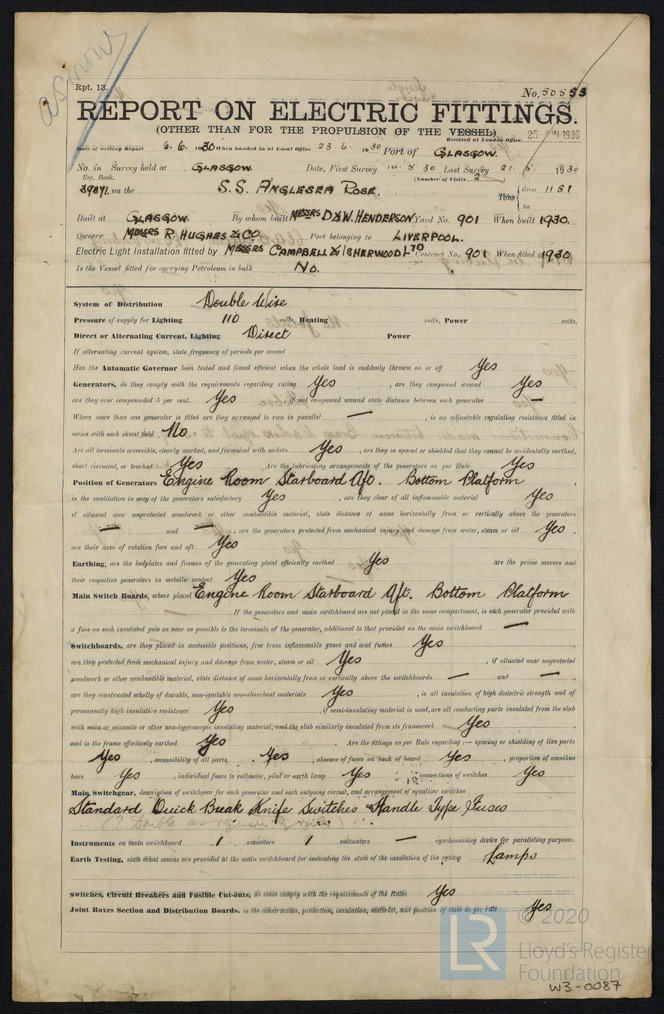 Rpt. 13.
No. 50553
REPORT ON ELECTRIC FITTINGS.
(OTHER THAN FOR THE PROPULSION OF THE VESSEL)
Received at London Office 25 JUN 1930
Date of writing Report 6.6.1930 When handed in at Local Office 23.6.1930 Port of GLASGOW.
No. in Survey held at GLASGOW. Date, First Survey Last Survey 21.5.1930
Reg. Book. (Number of Visits 2
39871. on the S.S. ANGLESEA ROSE. Tons Gross 1151
Net
Built at GLASGOW. By whom built MESSRS D&W. HENDERSON Yard No. 901 When built 1930.
Owners MESSRS R. HUGHES & CO. Port belonging to LIVERPOOL.
Electric Light Installation fitted by MESSRS CAMPBELL & ISHERWOOD LTD Contract No. 901 When fitted 1930
Is the Vessel fitted for carrying Petroleum in bulk No.
System of Distribution Double Wire
Pressure of supply for Lighting 110 volts, Heating volts, Power volts.
Direct or Alternating Current, Lighting Direct Power
If alternating current system, state frequency of periods per second
Has the Automatic Governor been tested and found efficient when the whole load is suddenly thrown on or off Yes
Generators, do they comply with the requirements regarding rating Yes, are they compound wound Yes
are they over compounded 5 per cent. Yes, if not compound wound state distance between each generator —
Where more than one generator is fitted are they arranged to run in parallel —, is an adjustable regulating resistance fitted in
series with each shunt field No.
Are all terminals accessible, clearly marked, and furnished with sockets Yes, are they so spaced or shielded that they cannot be accidentally earthed,
short circuited, or touched Yes. Are the lubricating arrangements of the generators as per Rule Yes
Position of Generators Engine Room Starboard Aft. Bottom Platform
is the ventilation in way of the generators satisfactory Yes, are they clear of all inflammable material Yes
if situated near unprotected woodwork or other combustible material, state distance of same horizontally from or vertically above the generators
— and —, are the generators protected from mechanical injury and damage from water, steam or oil Yes
are their axes of rotation fore and aft Yes
Earthing, are the bedplates and frames of the generating plant efficiently earthed Yes are the prime movers and
their respective generators in metallic contact Yes
Main Switch Boards, where placed Engine Room Starboard Aft. Bottom Platform
If the generators and main switchboard are not placed in the same compartment, is each generator provided with
a fuse on each insulated pole as near as possible to the terminals of the generator, additional to that provided on the main switchboard —
Switchboards, are they placed in accessible positions, free from inflammable gases and acid fumes Yes
are they protected from mechanical injury and damage from water, steam or oil Yes, if situated near unprotected
woodwork or other combustible material, state distance of same horizontally from or vertically above the switchboards — and —
are they constructed wholly of durable, non-ignitable non-absorbent materials Yes, is all insulation of high dielectric strength and of
permanently high insulation resistance Yes, if semi-insulating material is used, are all conducting parts insulated from the slab
with mica or micanite or other non-hygroscopic insulating material, and the slab similarly insulated from its framework Yes
and is the frame effectively earthed Yes. Are the fittings as per Rule regarding:— spacing or shielding of live parts
Yes, accessibility of all parts, Yes, absence of fuses on back of board Yes, proportion of omnibus
bars Yes, individual fuses to voltmeter, pilot or earth lamp Yes, connections of switches Yes
Main Switchgear, description of switchgear for each generator and each outgoing circuit, and arrangement of equalizer switches
Standard Quick Break Knife Switches Handle Type Fuses
Instruments on main switchboard 1 ammeters 1 voltmeters — synchronising device for paralleling purposes.
Earth Testing, state what means are provided at the main switchboard for indicating the state of the insulation of the system Lamps
Switches, Circuit Breakers and Fusible Cut-outs, do these comply with the requirements of the Rules Yes
Joint Boxes Section and Distribution Boards, is the construction, protection, insulation, material, and position of these as per rule Yes
© 2020
LR
Lloyd's Register
Foundation
W3-0087